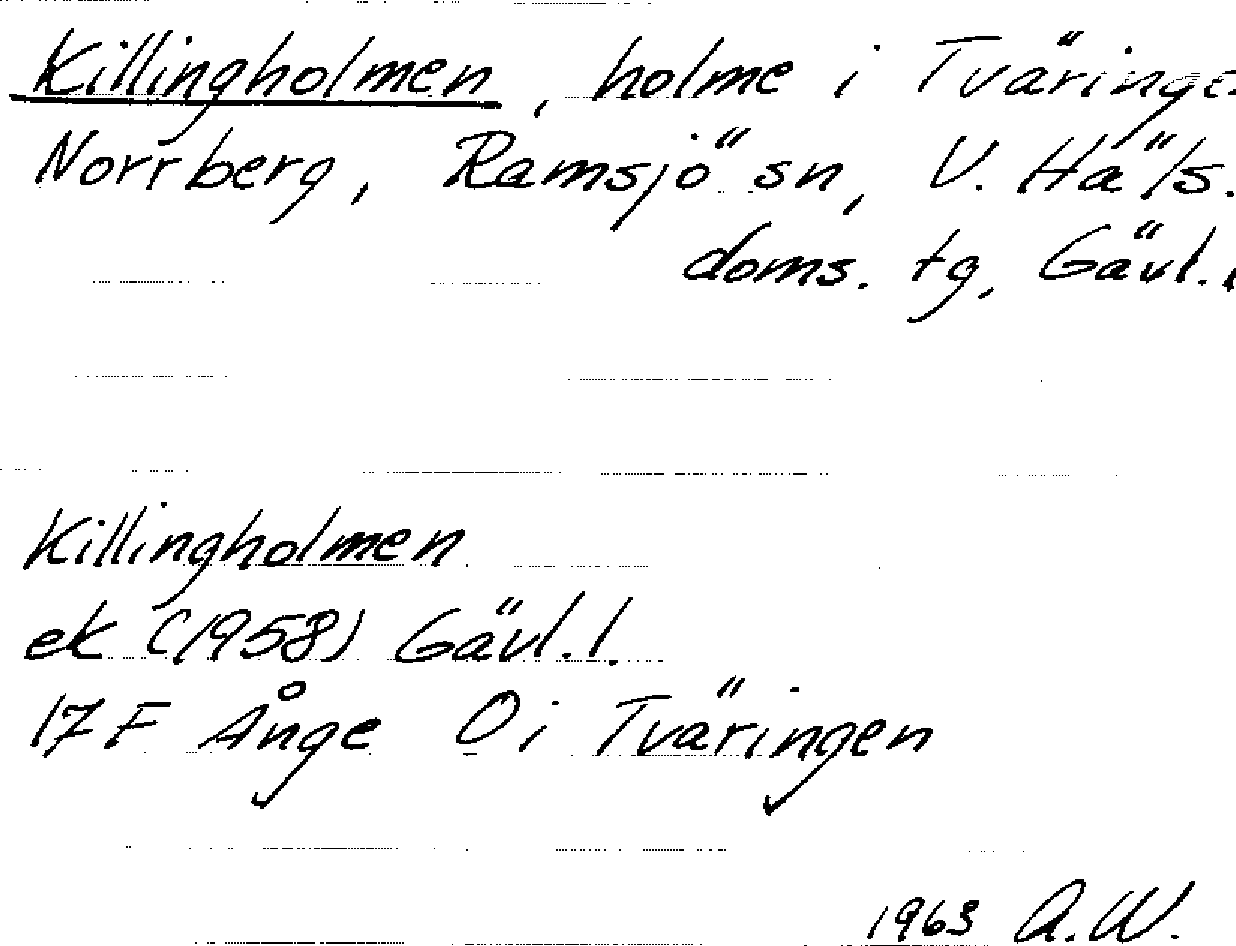 Killingholmen, holme i Tväringe
Norrberg, Ramsjö sn, V. Häls.
doms. tg, Gävl.
Killingholmen
ek (1958) Gävl.l.
17F Ånge Ö i Tväringen
1963 A.W.